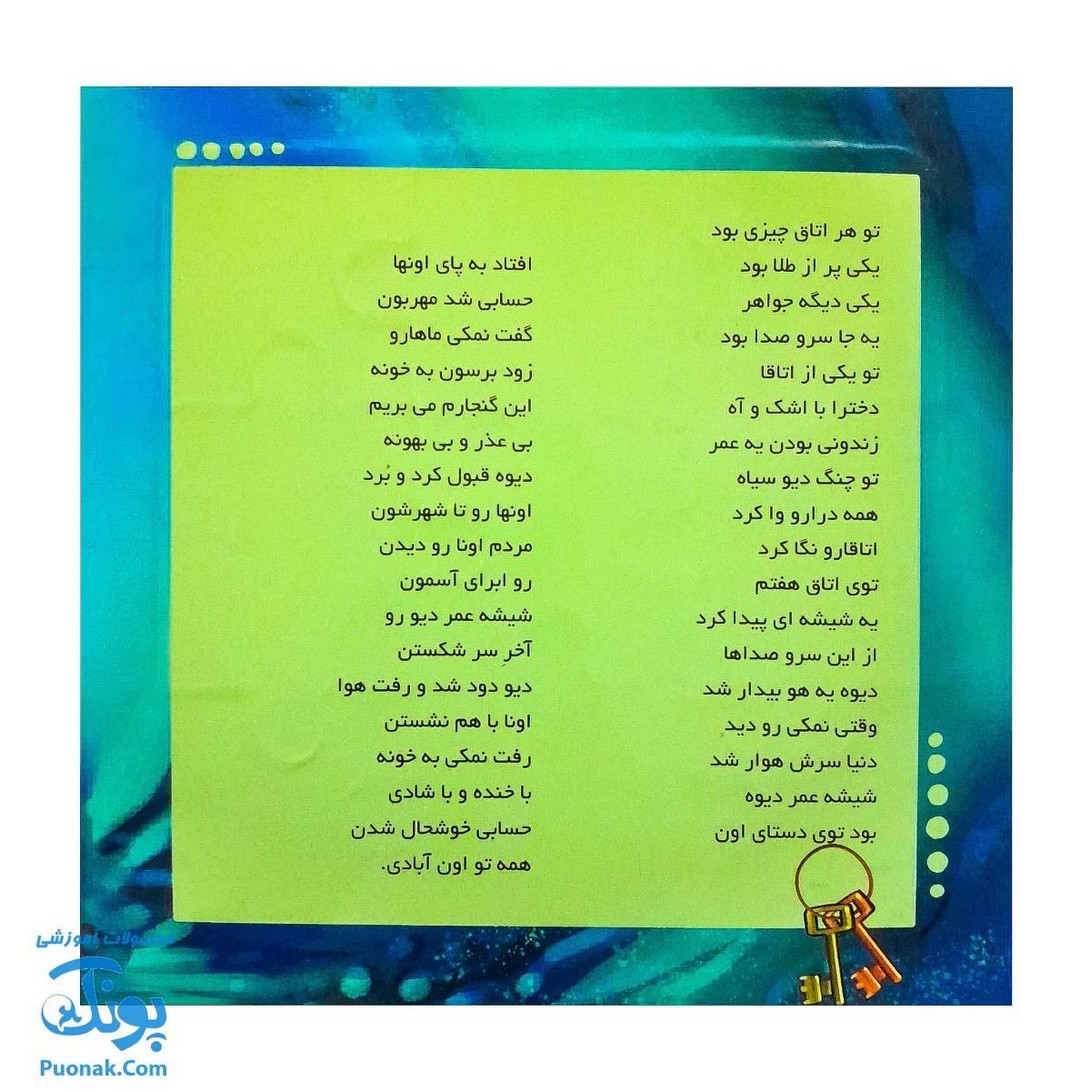 تو هر اتاق چیزی بود
یکی پر از طلا بود
یکی دیگه جواهر
یه جا سرو صدا بود
تو یکی از اتاقا
دخترا با اشک و آه
زندونی بودن یه عمر
تو چنگ دیو سیاه
همه درارو وا کرد
اتاقارو نگا کرد
توی اتاق هفتم
یه شیشه ای پیدا کرد
از این سرو صداها
دیوه یه هو بیدار شد
وقتی نمکی رو دید
دنیا سرش هوار شد
شیشه عمر دیوه
بود توی دستای اون
افتاد به پای اونها
حسابی شد مهربون
گفت نمکی ماهارو
زود برسون به خونه
این گنجارم می بریم
بی عذر و بی بهونه
دیوه قبول کرد و بُرد
اونها رو تا شهرشون
مردم اونا رو دیدن
رو ابرای آسمون
شیشه عمر دیو رو
آخرِ سر شکستن
دیو دود شد و رفت هوا
اونا با هم نشستن
رفت نمکی به خونه
با خنده و با شادی
حسابی خوشحال شدن
همه تو اون آبادی.
محصولات آموزشی
پونک
Puonak.Com